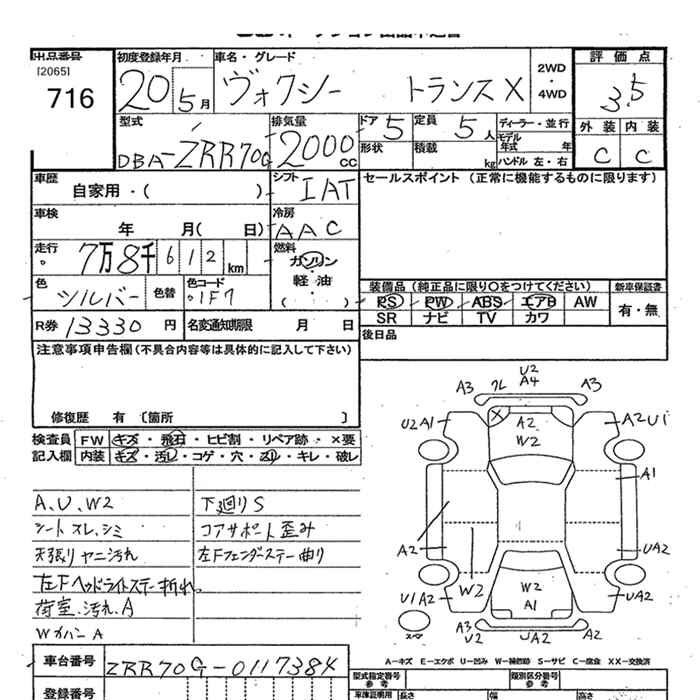 出品番号
[2065]
716
初度登録年月
20 5月
車名・グレード
ヴォクシー トランスX
2WD
・
4WD
評価点
3.5
外装 内装
C C
型式
DBA-ZRR70G
排気量
2000cc
ドア 5
定員 5人
ディーラー・並行
形状
積載 kg
モデル年式 年
ハンドル 左・右
車歴
自家用・( )
シフト
IAT
セールスポイント (正常に機能するものに限ります)
車検
年 月( 日)
冷房
AAC
走行
7万8千612km
燃料
ガソリン
・
軽油
( )
色
シルバー
色替
色コード
1F7
装備品 (純正品に限り○をつけてください)
新車保証書
PS PW ABS エアB AW
有・無
SR ナビ TV カワ
R券 13330円
名変通知期限 月 日
後日品
注意事項申告欄(不具合内容等は具体的に記入して下さい)
修復歴 有 〔箇所 〕
検査員
記入欄
FW キズ・飛石・ヒビ割・リペア跡・×要
内装 キズ・汚れ・コゲ・穴・スリ・キレ・破レ
A、U、W2
シート スレ、シミ
天張リ ヤニ汚れ
左Fヘッドライトステー折れ
荷室、汚れ、A
Wカバー A
下廻りS
コアサポート歪み
左Fフェンダーステー曲り
U2
A3 クレ A4 A3
U2A1 X A2 W2 A2U1
A1
A2 UA2
W2 W2
U1A2 A1 UA2
スペア
A3
U2 UA2 A2
A-キズ E-エクボ U-凹み W-補修跡 S-サビ C-腐食 XX-交換済
車台番号
ZRR70G-0117384
登録番号
型式指定番号
参考
類別区分番号
参考
車庫証明用
長さ 幅 高さ